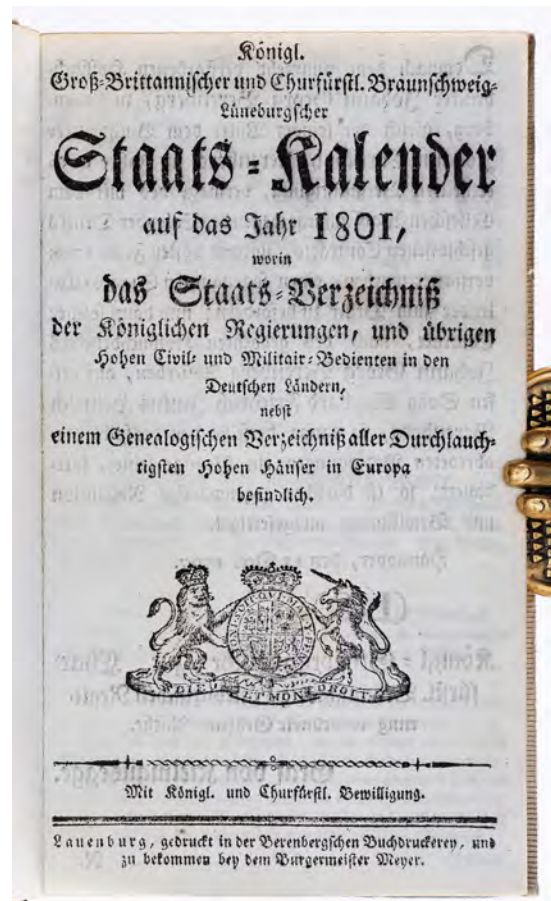 Königl.
Groß-Brittannischer und Churfürstl. Braunschweig-
Lüneburgscher
Staats-Kalender
auf das Jahr 1801,
worin
das Staats-Verzeichniß
der Königlichen Regierungen, und übrigen
Hohen Civil- und Militair-Bedienten in den
Deutschen Ländern,
nebst
einem Genealogischen Verzeichniß aller Durchlauch-
tigsten Hohen Häuser in Europa
befindlich.
DIEU ET MON DROIT
Mit Königl. und Churfürstl. Bewilligung.
Lauenburg, gedruckt in der Berenbergschen Buchdruckerey, und
zu bekommen bey dem Burgermeister Meyer.